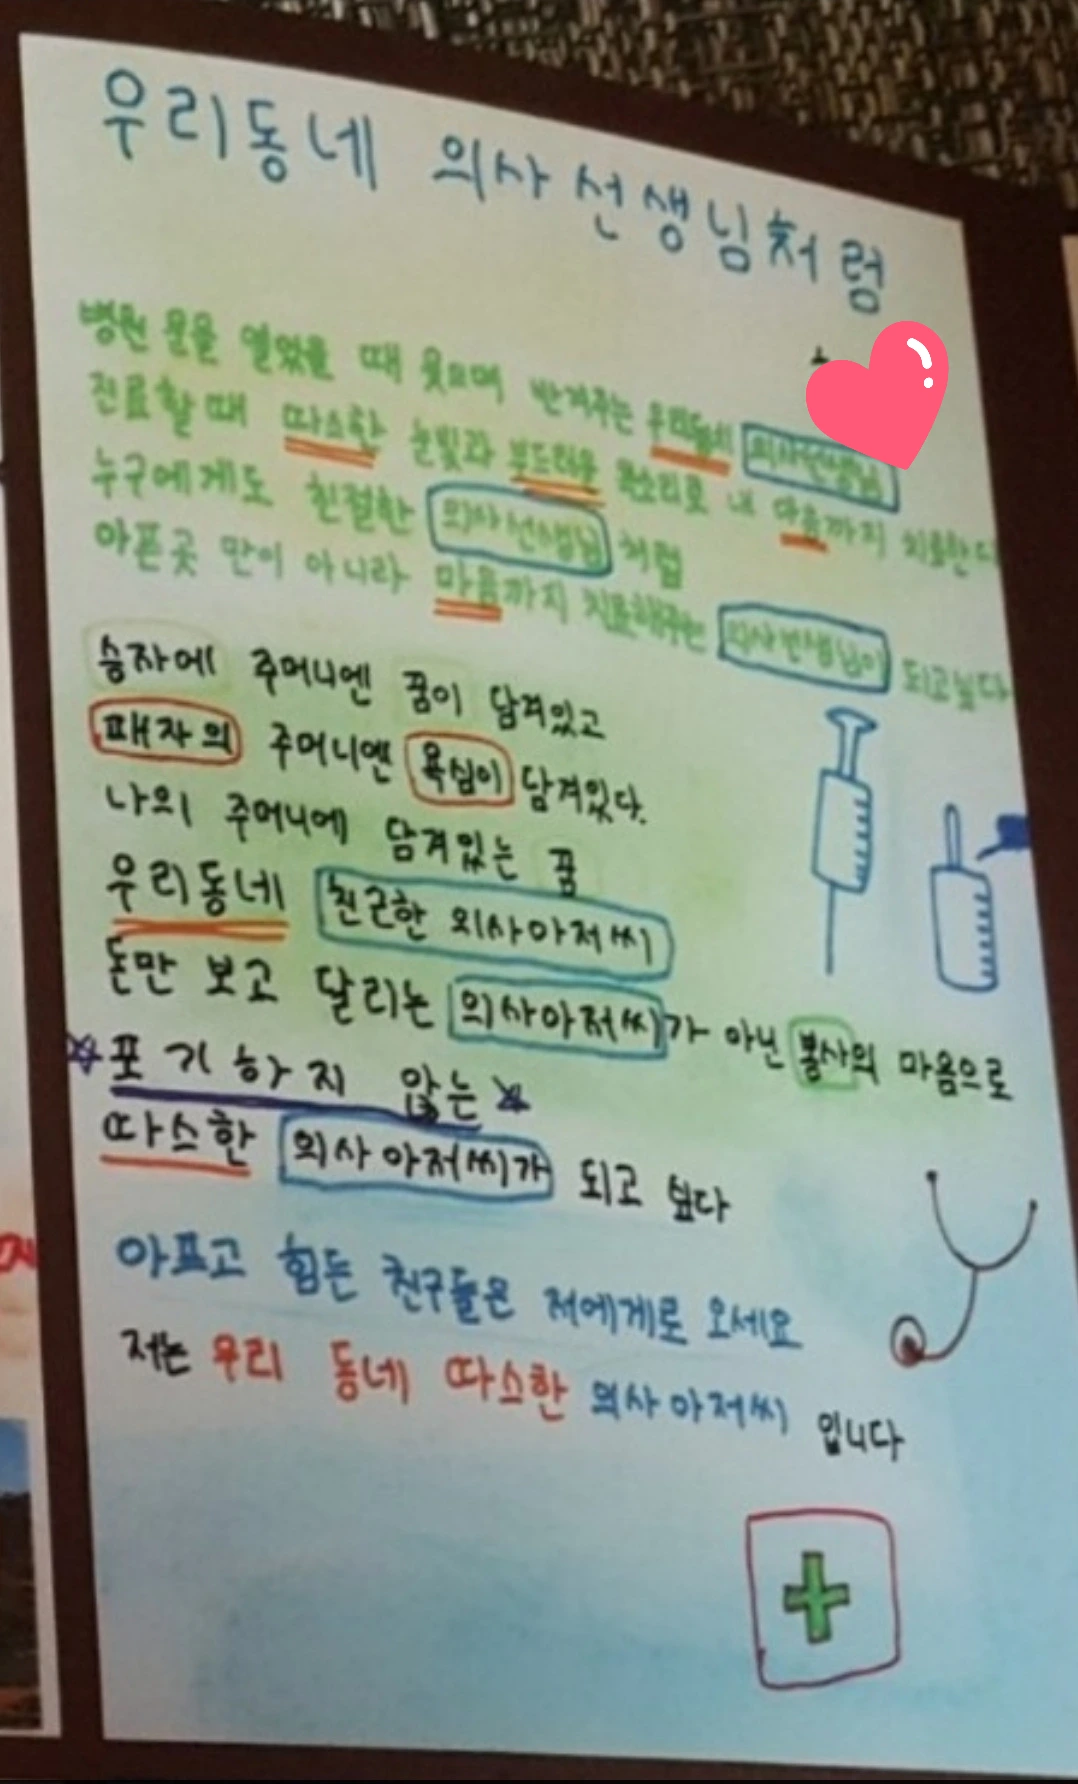 우리동네 의사선생님처럼
병원 문을 열었을 때 웃으며 반겨주는 우리동네 의사선생님
진료할때 따스한 눈빛과 부드러운 목소리로 내 마음까지 치료한다
누구에게도 친절한 의사선생님 처럼
아픈곳 만이 아니라 마음까지 치료해주는 의사선생님이 되고싶다
승자에 주머니엔 꿈이 담겨있고
패자의 주머니엔 욕심이 담겨있다.
나의 주머니에 담겨있는 꿈
우리동네 친근한 의사아저씨
돈만 보고 달리는 의사아저씨가 아닌 봉사의 마음으로
포기하지 않는
따스한 의사아저씨가 되고 싶다
아프고 힘든 친구들은 저에게로 오세요
저는 우리 동네 따스한 의사아저씨 입니다